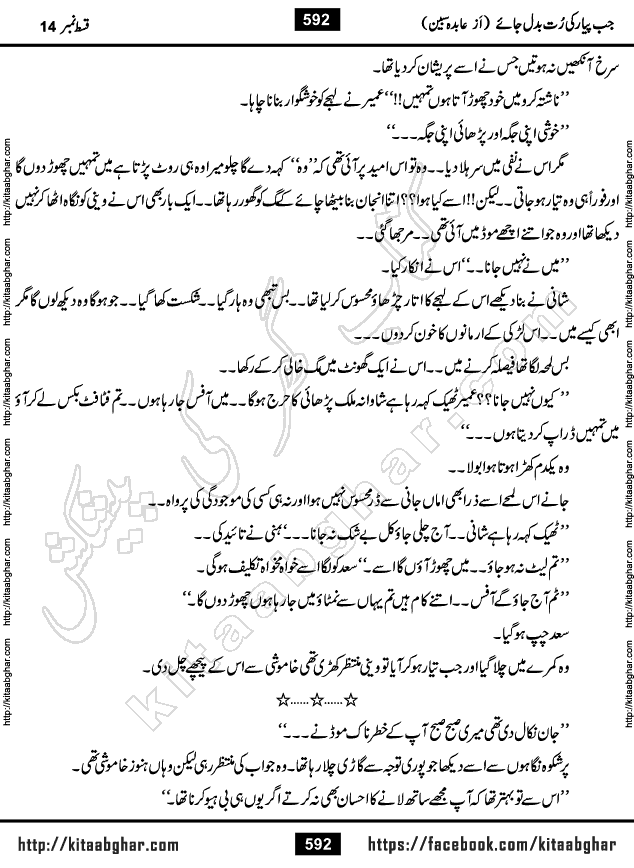 جب پیار کی رُت بدل جائے (اَز عابدہ سبین)
592
قسط نمبر 14
سرخ آنکھیں نہ ہوتیں جس نے اسے پریشان کر دیا تھا۔
’’ناشتہ کرو میں خود چھوڑ آتا ہوں تمہیں!!‘‘ عمیر نے لہجے کو خوشگوار بنانا چاہا۔
’’خوشی اپنی جگہ اور پڑھائی اپنی جگہ۔۔۔‘‘
مگر اس نے نفی میں سر ہلا دیا۔۔وہ تو اس امید پر آئی تھی کہ ’’وہ‘‘ کہہ دے گا چلو میرا وہ ہی روٹ پڑتا ہے میں تمہیں چھوڑ دوں گا
اور فوراً ہی وہ تیار ہو جاتی۔۔لیکن!! اسے کیا ہوا؟؟ اتنا انجان بنا بیٹھا چائے کے مگ کو گھور رہا تھا۔۔ایک بار بھی اس نے وینی کو نگاہ اٹھا کر نہیں
دیکھا تھا اور وہ جو اتنے اچھے موڈ میں آئی تھی۔۔مرجھا گئی۔۔
’’میں نے نہیں جانا۔۔‘‘ اس نے انکار کیا۔
شانی نے بنا دیکھے اس کے لہجے کا اتار چڑھاؤ محسوس کر لیا تھا۔۔بس تبھی وہ ہار گیا۔۔شکست کھا گیا۔۔جو ہوگا وہ دیکھ لوں گا مگر
ابھی کیسے میں۔۔اس لڑکی کے ارمانوں کا خون کر دوں۔۔۔
بس لمحہ لگا تھا فیصلہ کرنے میں۔۔اس نے ایک گھونٹ میں مگ خالی کر کے رکھا۔۔
’’کیوں نہیں جانا؟؟ عمیر ٹھیک کہہ رہا ہے شاوانہ ملک پڑھائی کا حرج ہوگا۔۔میں آفس جا رہا ہوں۔۔تم فٹافٹ بکس لے کر آؤ
میں تمہیں ڈراپ کر دیتا ہوں۔۔۔‘‘
وہ یکدم کھڑا ہوتا ہوا بولا۔۔
جانے اس لمحے اسے ذرا بھی اماں جانی سے ڈر محسوس نہیں ہوا اور نہ ہی کسی کی موجودگی کی پرواہ۔۔
’’ٹھیک کہہ رہا ہے شانی۔۔آج چلی جاؤ کل بے شک نہ جانا۔۔۔‘‘ ہنی نے تائید کی۔۔
’’تم لیٹ نہ ہو جاؤ۔۔میں چھوڑ آؤں گا اسے۔‘‘ سعد کو لگا اسے خواہ مخواہ تکلیف ہوگی۔
’’تم آج جاؤ گے آفس۔۔اتنے کام ہیں تم یہاں سے نمٹاؤ میں جا رہا ہوں چھوڑ دوں گا۔‘‘
سعد چپ ہو گیا۔
وہ کمرے میں چلا گیا اور جب تیار ہو کر آیا تو وینی منتظر کھڑی تھی خاموشی سے اس کے پیچھے چل دی۔
☆......☆......☆
’’جان نکال دی تھی میری صبح صبح آپ کے خطرناک موڈ نے۔۔۔‘‘
پر شکوہ نگاہوں سے اسے دیکھا جو پوری توجہ سے گاڑی چلا رہا تھا۔وہ جواب کی منتظر رہی لیکن وہاں ہنوز خاموشی تھی۔
’’اس سے تو بہتر تھا کہ آپ مجھے ساتھ لانے کا احسان بھی نہ کرتے اگر یوں ہی بی ہیو کرنا تھا۔‘‘
http://kitaabghar.com
592
https://facebook.com/kitaabghar
http://kitaabghar.com http://kitaabghar.com http://kitaabghar.com http://kitaabghar.com http://kitaabghar.com http://kitaabghar.com
http://kitaabghar.com http://kitaabghar.com http://kitaabghar.com http://kitaabghar.com http://kitaabghar.com http://kitaabghar.com
کتاب گھر کی پیشکش
kitaabghar.com